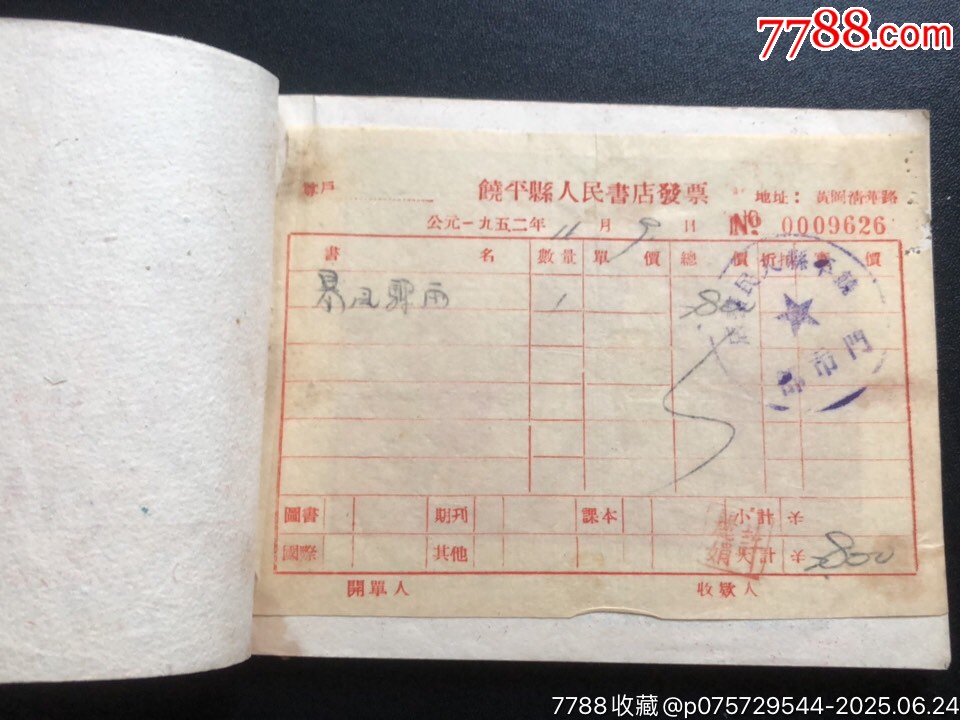 7788.com
寶戶 饒平縣人民書店發票 地址：黃岡清華路
公元一九五二年 11 月 9 日 № 0009626
書 名 數量 單 價 總 價 折扣 實 價
暴风驟雨 1
饒平縣人民書店
門市部
圖書 期刊 課本 小計 ￥
國際 其他 大計 ￥
開單人 收款人
7788收藏@p075729544-2025.06.24